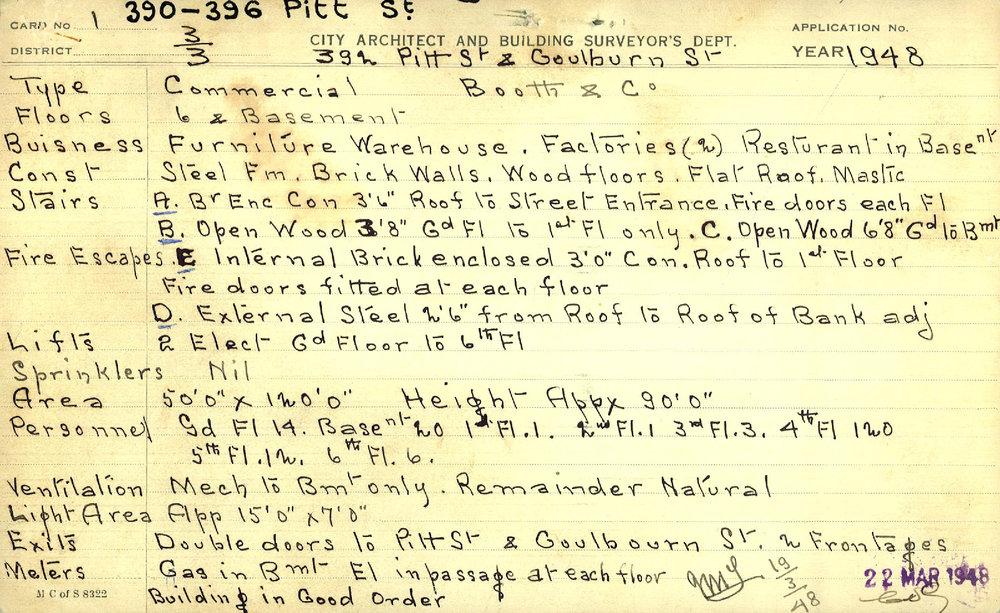 CARD No. 1 390-396 Pitt St APPLICATION No.
DISTRICT 3/3 CITY ARCHITECT AND BUILDING SURVEYOR'S DEPT. YEAR 1948
392 Pitt St & Goulburn St
Type Commercial Booth & Co
Floors 6 & Basement
Buisness Furniture Warehouse. Factories (2) Resturant in Basent
Const Steel Fm. Brick Walls. Wood floors. Flat Roof. Mastic
Stairs A. Br Enc Con 3'6" Roof to Street Entrance. Fire doors each Fl
B. Open Wood 3'8" Gd Fl to 1st Fl only. C. Open Wood 6'8" Gd to Bmt
Fire Escapes. E Internal Brick enclosed 3'0" Con. Roof to 1st Floor
Fire doors fitted at each floor
D. External Steel 2'6" from Roof to Roof of Bank adj
Lifts 2 Elect Gd Floor to 6th Fl
Sprinklers Nil
Area 50'0" x 120'0" Height Appx 90'0"
Personnel Gd Fl 14. Basent 20 1st Fl. 1. 2nd Fl. 1 3rd Fl. 3. 4th Fl 120
5th Fl. 12. 6th Fl. 6.
Ventilation Mech to Bmt only. Remainder Natural
Light Area App 15'0" x 7'0"
Exits Double doors to Pitt St & Goulbourn St. 2 Frontages
Meters Gas in Bmt El in passage at each floor 19/3/48 22 MAR 1948
M C of S 8322 Building in Good Order